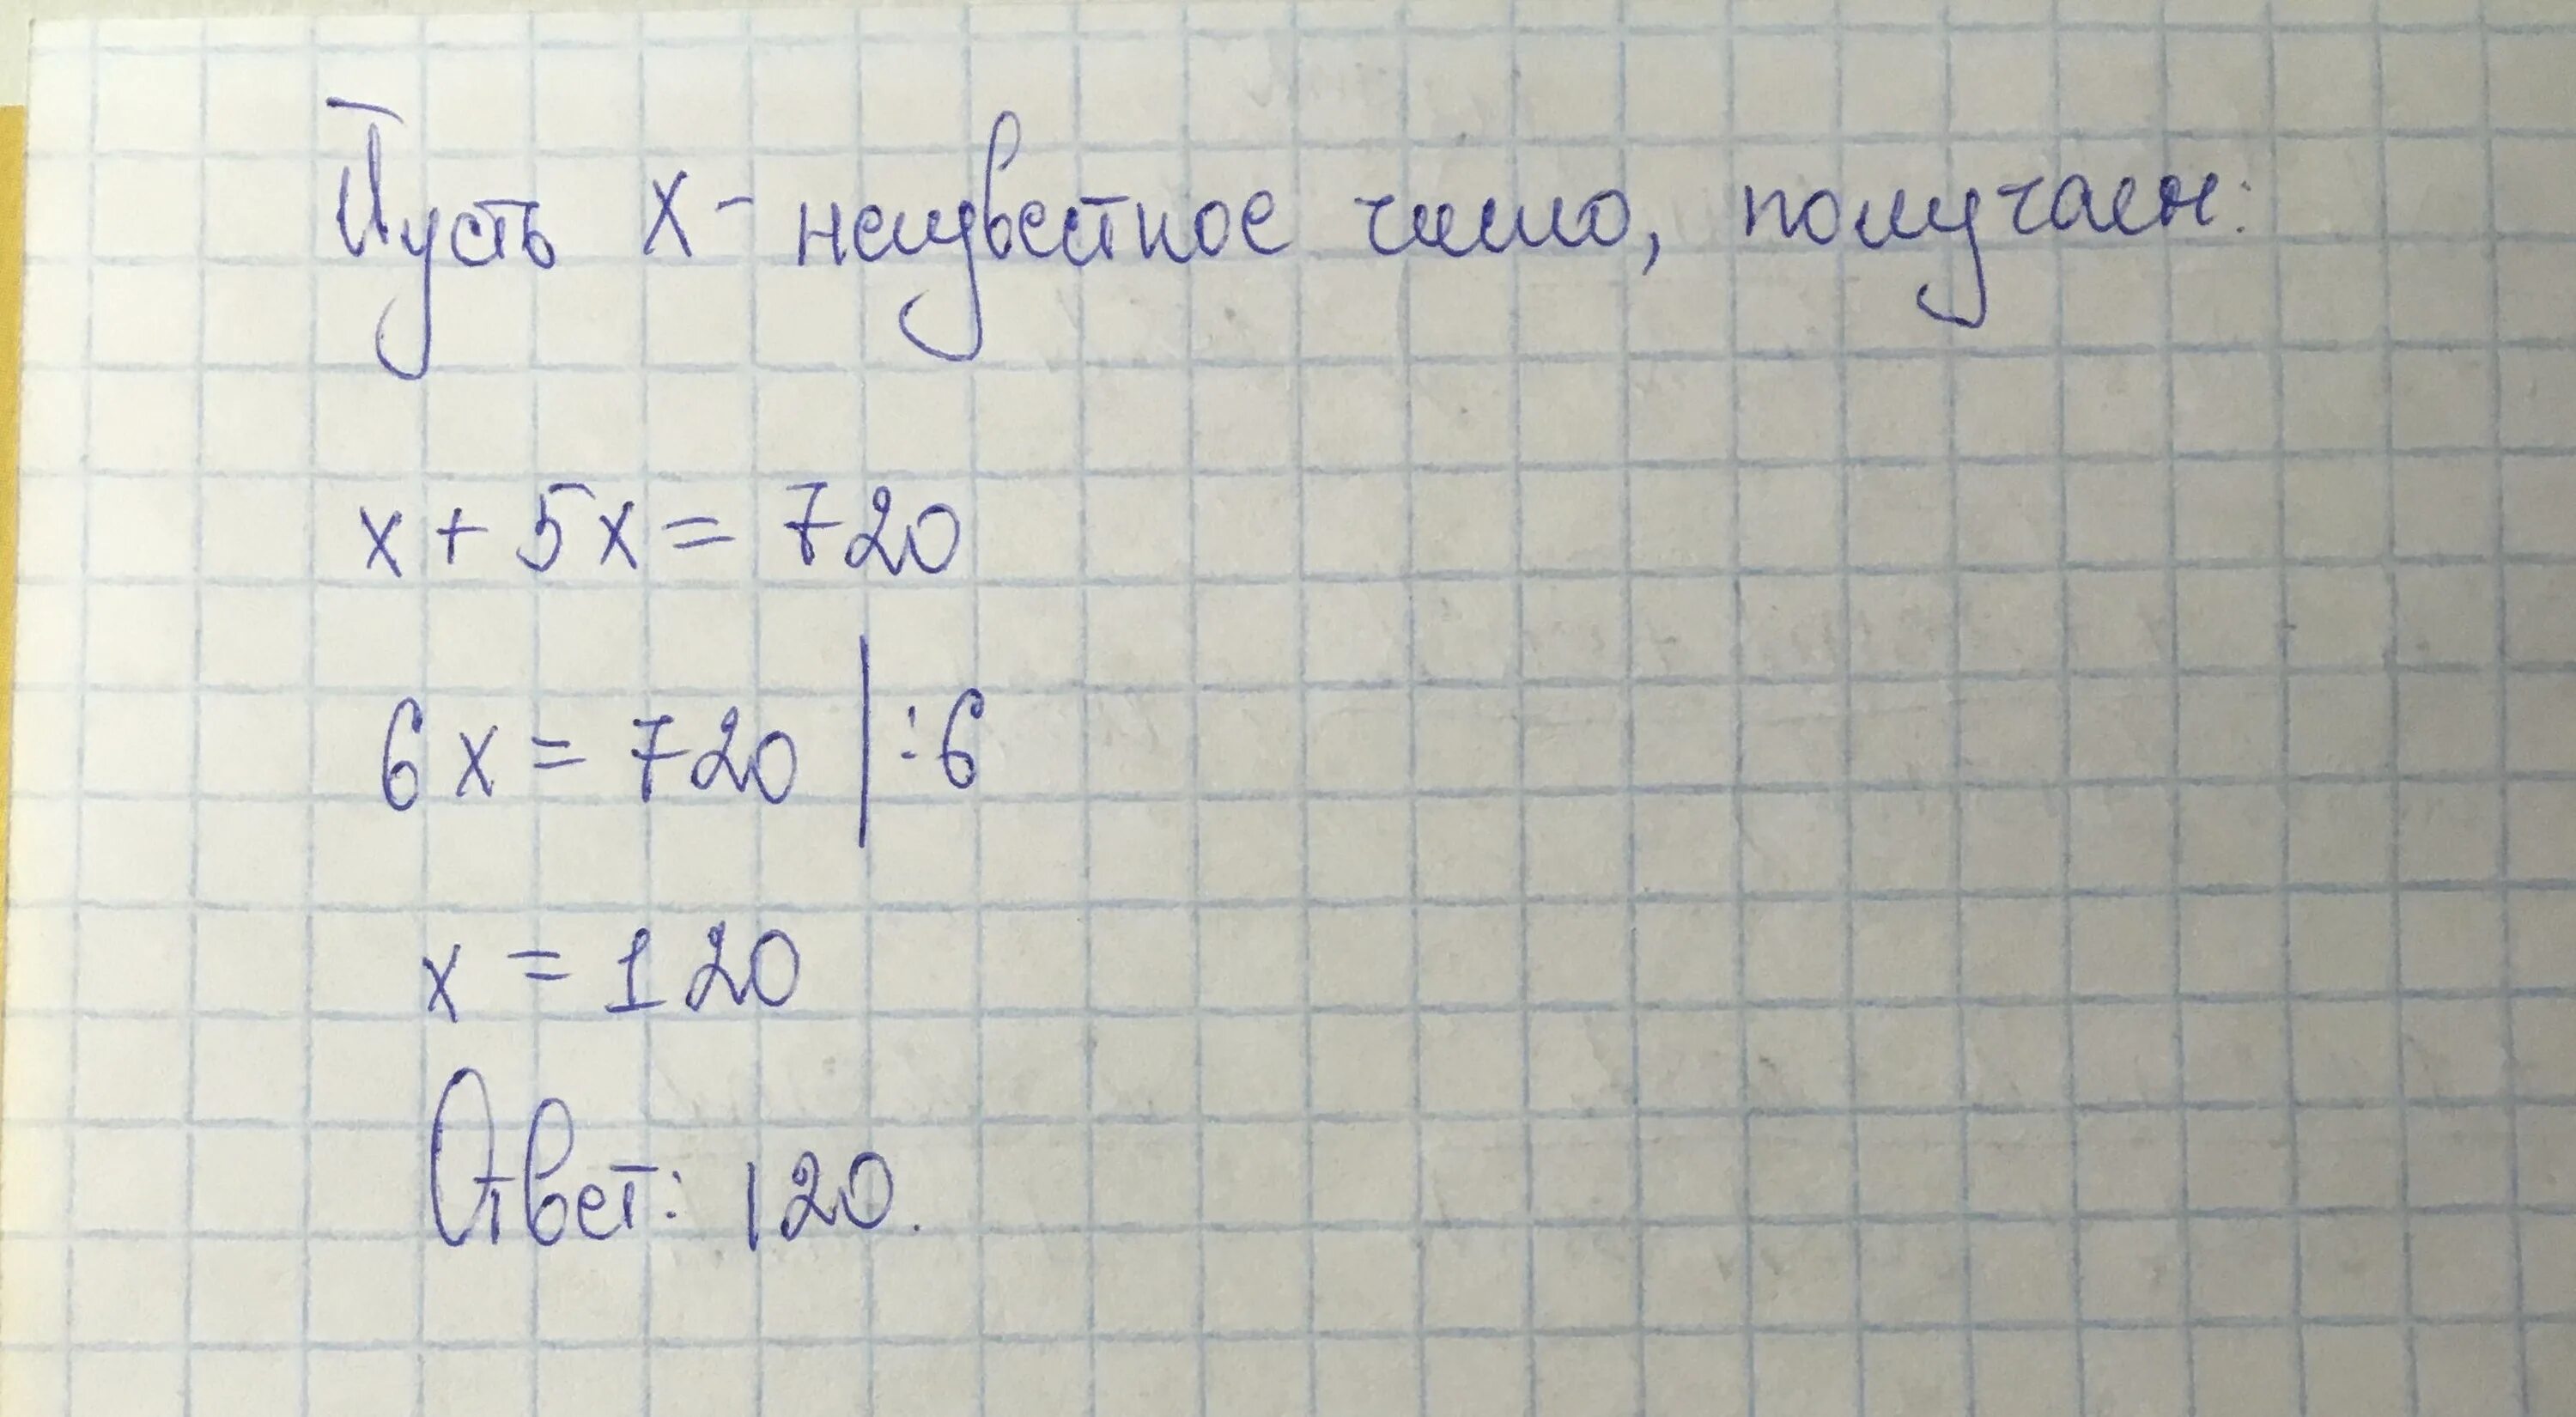 Пусть x - неизвестное число, получаем:
x + 5x = 720
6x = 720 | :6
x = 120
Ответ: 120.